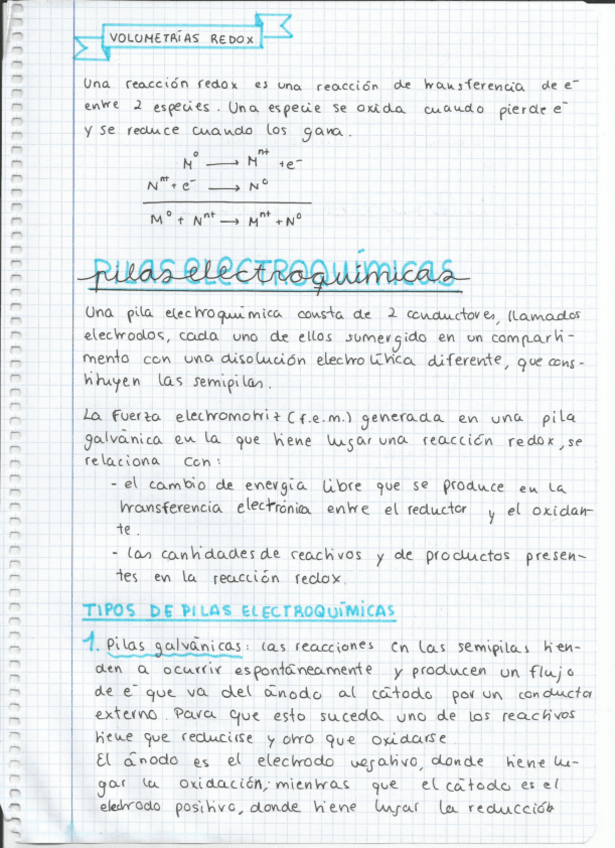 VOLUMETRÍAS REDOX
Una reacción redox es una reacción de transferencia de e⁻
entre 2 especies. Una especie se oxida cuando pierde e⁻
y se reduce cuando los gana.
M⁰ ⟶ Mⁿ⁺ + e⁻
Nⁿ⁺ + e⁻ ⟶ N⁰
M⁰ + Nⁿ⁺ ⟶ Mⁿ⁺ + N⁰
PILAS ELECTROQUÍMICAS
pilas electroquímicas
Una pila electroquímica consta de 2 conductores, llamados
electrodos, cada uno de ellos sumergido en un comparti-
mento con una disolución electrolítica diferente, que cons-
tituyen las semipilas.
La fuerza electromotriz (f.e.m.) generada en una pila
galvánica en la que tiene lugar una reacción redox, se
relaciona con:
- el cambio de energía libre que se produce en la
transferencia electrónica entre el reductor y el oxidan-
te.
- las cantidades de reactivos y de productos presen-
tes en la reacción redox.
TIPOS DE PILAS ELECTROQUÍMICAS
1. Pilas galvánicas: las reacciones en las semipilas tien-
den a ocurrir espontáneamente y producen un flujo
de e⁻ que va del ánodo al cátodo por un conductor
externo. Para que esto suceda uno de los reactivos
tiene que reducirse y otro que oxidarse.
El ánodo es el electrodo negativo, donde tiene lu-
gar la oxidación; mientras que el cátodo es el
electrodo positivo, donde tiene lugar la reducción